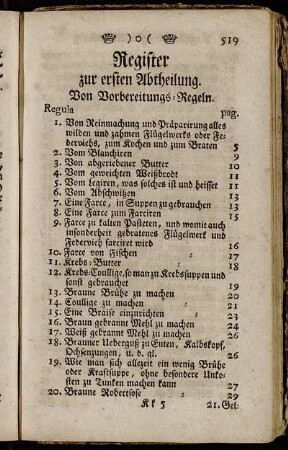 )o( 519
Register
zur ersten Abtheilung.
Von Vorbereitungs-Regeln.
Regula pag.
1. Von Reinmachung und Präparirung alles
wilden und zahmen Flügelwerks oder Fe-
derviehs, zum Kochen und zum Braten 5
2. Vom Blanchiren 9
3. Von abgeriebener Butter 10
4. Vom geweichten Weißbrodt 11
5. Vom legiren, was solches ist und heisset 11
6. Vom Abschwitzen 12
7. Eine Farce, in Suppen zu gebrauchen 13
8. Eine Farce zum Farciren 15
9. Farce zu kalten Pasteten, und womit auch
insonderheit gebratenes Flügelwerk und
Federvieh farciret wird 16
10. Farce von Fischen 17
11. Krebs-Butter 18
12. Krebs-Coullige, so man zu Krebssuppen und
sonst gebrauchet 19
13. Braune Brühe zu machen 20
14. Coullige zu machen 21
15. Eine Braise einzurichten 23
16. Braun gebrannt Mehl zu machen 24
17. Weiß gebrannt Mehl zu machen 26
18. Brauner Ueberguß zu Enten, Kalbskopf,
Ochsenzungen, u. d. gl. 26
19. Wie man sich allezeit ein wenig Brühe
oder Kraftsuppe, ohne besondere Unko-
sten zu Tunken machen kann 27
20. Braune Robertsose 29
Kk 5 21. Gel-